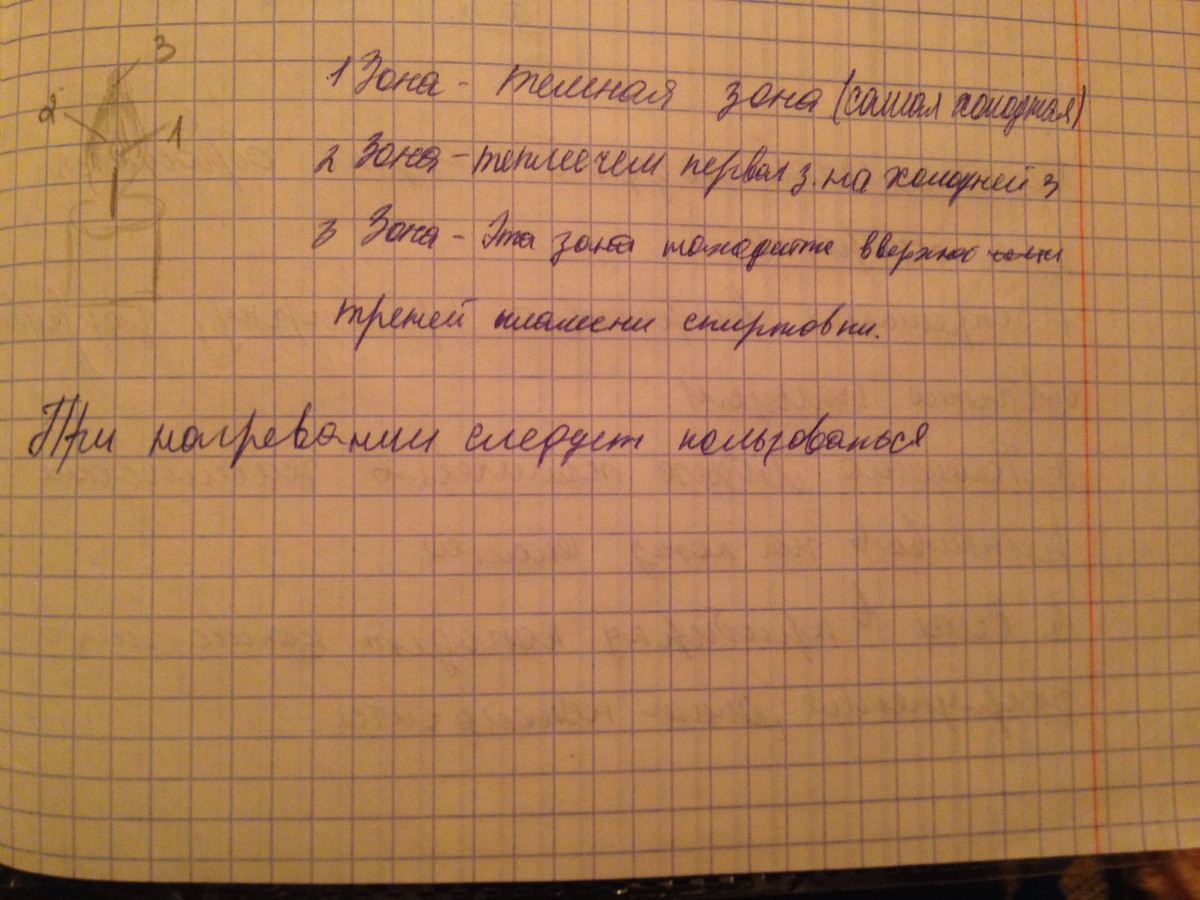 3
2
1
1 Зона - темная зона (самая холодная)
2 Зона - теплее чем первая з. на холодней 3
3 Зона - Эта зона находится в верхней
третей пламени спиртовки.
При нагревании следует пользоваться